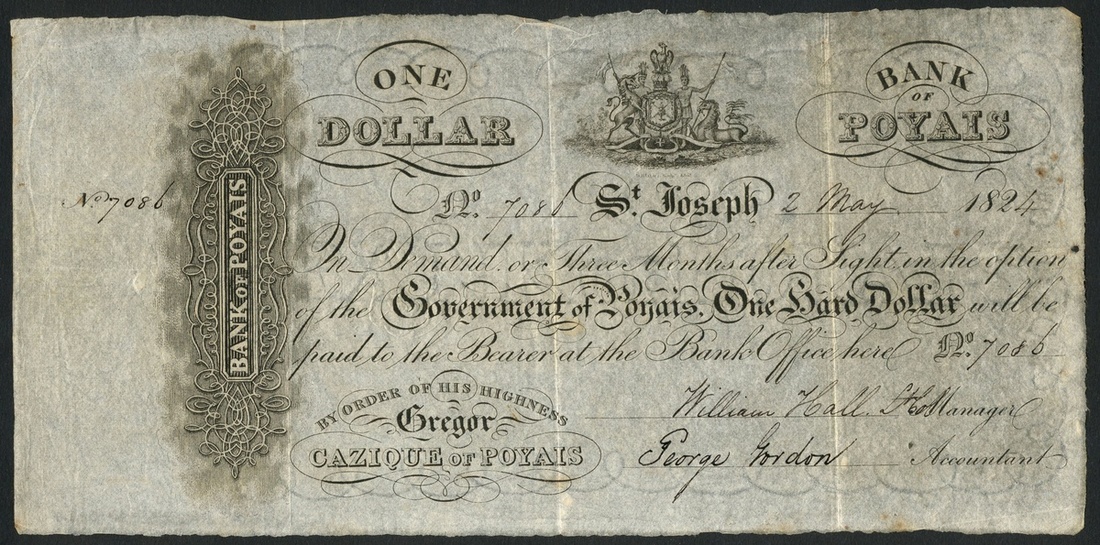 ONE
DOLLAR
BANK
OF
POYAIS
No. 7086
BANK OF POYAIS
No. 7086 St. Joseph 2 May 1824
On Demand or Three Months after Sight in the option
of the Government of Poyais, One Hard Dollar will be
paid to the Bearer at the Bank Office here No. 7086
BY ORDER OF HIS HIGHNESS
Gregor
CAZIQUE OF POYAIS
William Hall Manager
George Gordon Accountant